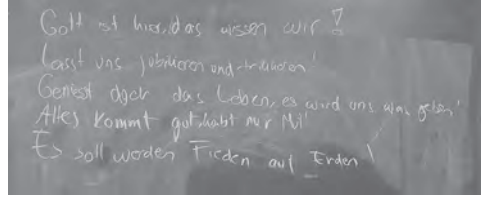 Gott ist hier, das wissen wir!
Lasst uns jubilieren und
Geniest doch das Leben, es wird uns geben!
Alles kommt gut, habt nur Mut!
Es soll werden Frieden auf Erden!